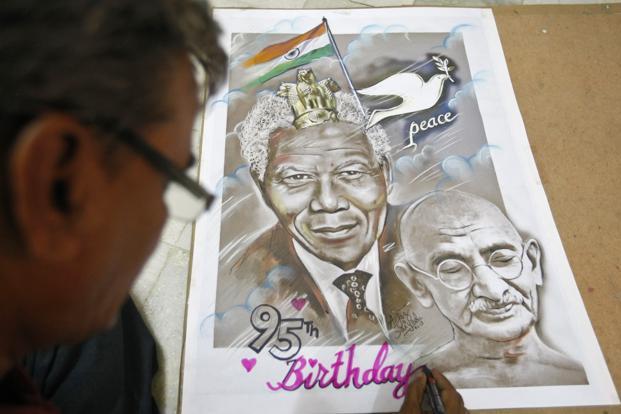 peace
95TH
Birthday